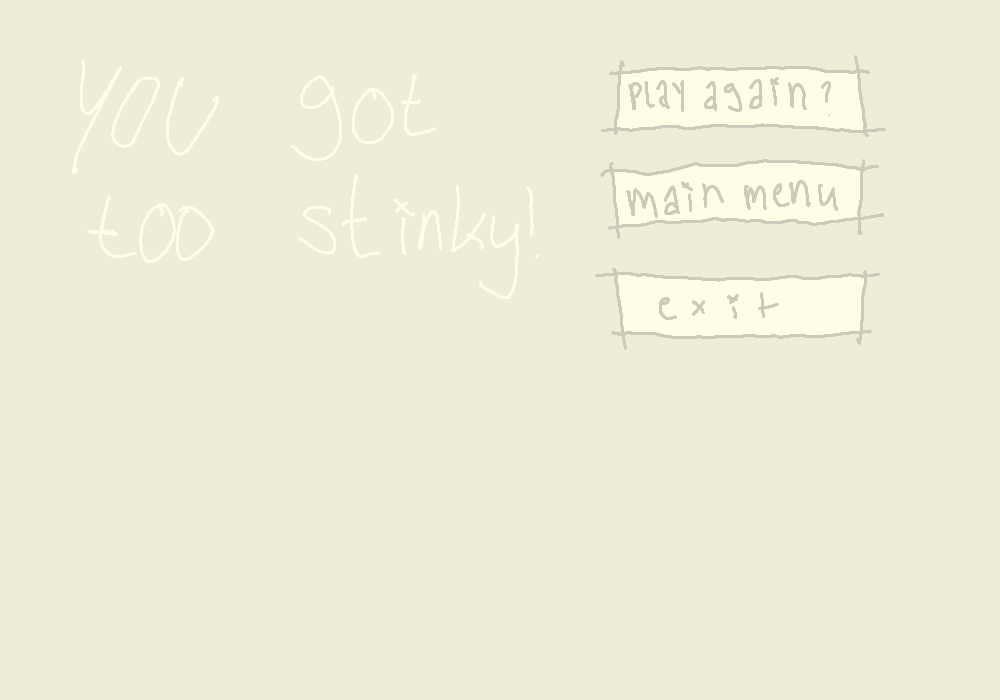 you got
too stinky!
play again?
main menu
exit